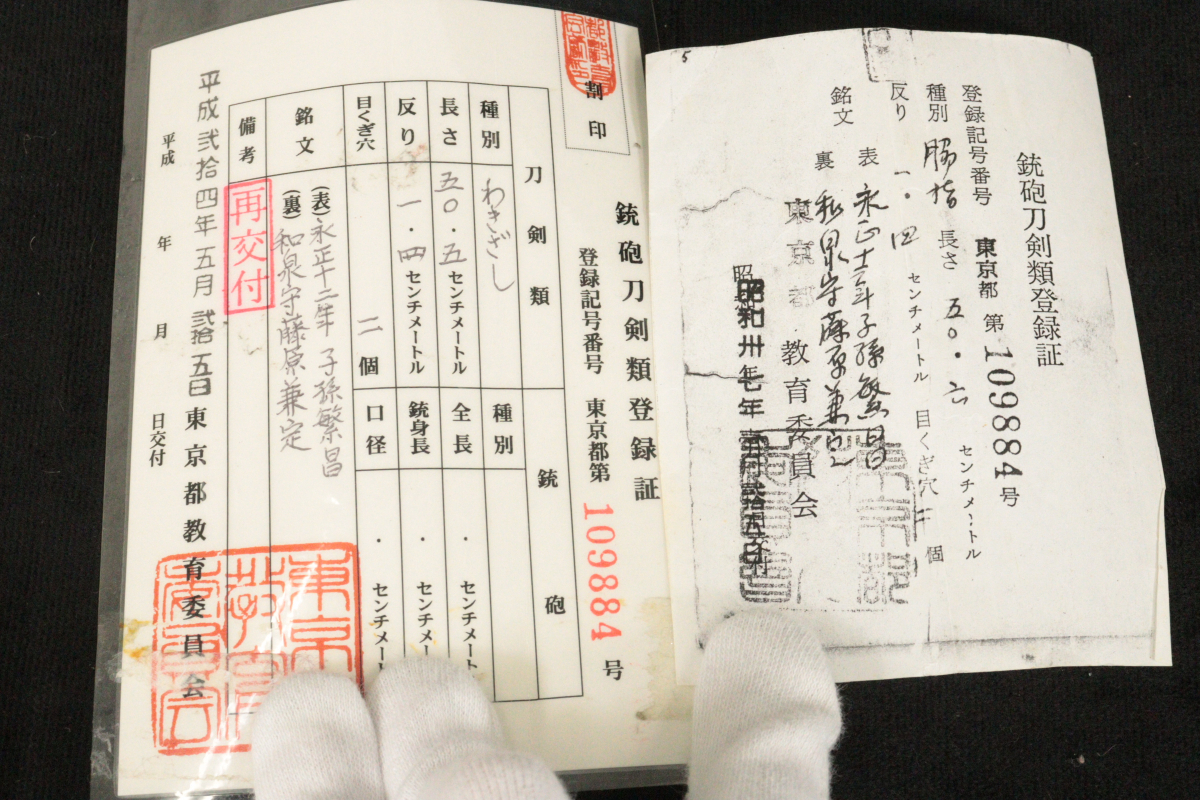 5
銃砲刀剣類登録証
登録記号番号 東京都 第 109884 号
種別 脇指 長さ 五〇・六 センチメートル
反り 一・四 センチメートル 目くぎ穴 個
銘文
表 永正十二年子孫繁昌
裏 和泉守藤原兼定
東京都教育委員会
昭和卅七年
割印
銃砲刀剣類登録証
登録記号番号 東京都第 109884 号
刀剣類
種別 わきざし
長さ 五〇・五 センチメートル
反り 一・四 センチメートル
目くぎ穴 二個
銘文
(表)永正十二年 子孫繁昌
(裏)和泉守藤原兼定
備考
再交付
銃砲
種別
全長 ・ センチメート
銃身長 ・ センチメー
口径 ・ センチメート
平成弐拾四年五月弐拾五日
東京都教育委員会
平成 年 月 日交付